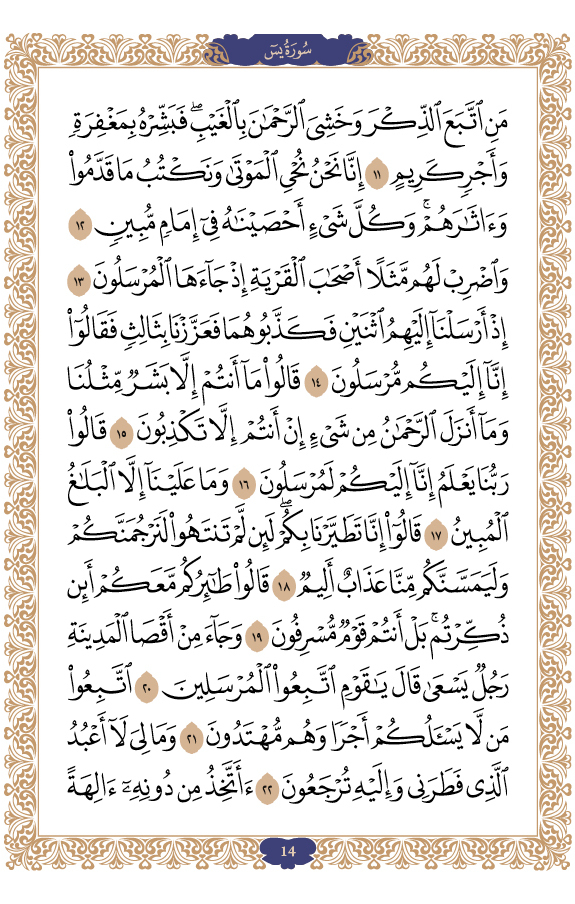 سُورَةُ يسٓ
مَنِ ٱتَّبَعَ ٱلذِّكْرَ وَخَشِىَ ٱلرَّحْمَٰنَ بِٱلْغَيْبِ ۖ فَبَشِّرْهُ بِمَغْفِرَةٍ
وَأَجْرٍ كَرِيمٍ ١١ إِنَّا نَحْنُ نُحْىِ ٱلْمَوْتَىٰ وَنَكْتُبُ مَا قَدَّمُوا۟
وَءَاثَٰرَهُمْ ۚ وَكُلَّ شَىْءٍ أَحْصَيْنَٰهُ فِىٓ إِمَامٍ مُّبِينٍ ١٢
وَٱضْرِبْ لَهُم مَّثَلًا أَصْحَٰبَ ٱلْقَرْيَةِ إِذْ جَآءَهَا ٱلْمُرْسَلُونَ ١٣
إِذْ أَرْسَلْنَآ إِلَيْهِمُ ٱثْنَيْنِ فَكَذَّبُوهُمَا فَعَزَّزْنَا بِثَالِثٍ فَقَالُوٓا۟
إِنَّآ إِلَيْكُم مُّرْسَلُونَ ١٤ قَالُوا۟ مَآ أَنتُمْ إِلَّا بَشَرٌ مِّثْلُنَا
وَمَآ أَنزَلَ ٱلرَّحْمَٰنُ مِن شَىْءٍ إِنْ أَنتُمْ إِلَّا تَكْذِبُونَ ١٥ قَالُوا۟
رَبُّنَا يَعْلَمُ إِنَّآ إِلَيْكُمْ لَمُرْسَلُونَ ١٦ وَمَا عَلَيْنَآ إِلَّا ٱلْبَلَٰغُ
ٱلْمُبِينُ ١٧ قَالُوٓا۟ إِنَّا تَطَيَّرْنَا بِكُمْ ۖ لَئِن لَّمْ تَنتَهُوا۟ لَنَرْجُمَنَّكُمْ
وَلَيَمَسَّنَّكُم مِّنَّا عَذَابٌ أَلِيمٌ ١٨ قَالُوا۟ طَٰٓئِرُكُم مَّعَكُمْ أَئِن
ذُكِّرْتُم ۚ بَلْ أَنتُمْ قَوْمٌ مُّسْرِفُونَ ١٩ وَجَآءَ مِنْ أَقْصَا ٱلْمَدِينَةِ
رَجُلٌ يَسْعَىٰ قَالَ يَٰقَوْمِ ٱتَّبِعُوا۟ ٱلْمُرْسَلِينَ ٢٠ ٱتَّبِعُوا۟
مَن لَّا يَسْـَٔلُكُمْ أَجْرًا وَهُم مُّهْتَدُونَ ٢١ وَمَا لِىَ لَآ أَعْبُدُ
ٱلَّذِى فَطَرَنِى وَإِلَيْهِ تُرْجَعُونَ ٢٢ ءَأَتَّخِذُ مِن دُونِهِۦٓ ءَالِهَةً
14